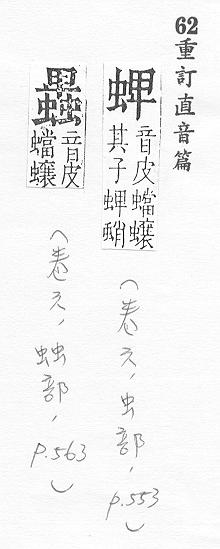 62重訂直音篇
蜱
音皮蟷蠰
其子蜱蛸
（卷六，虫部，p.553）
音皮
蟷蠰
（卷六，䖵部，p.563）